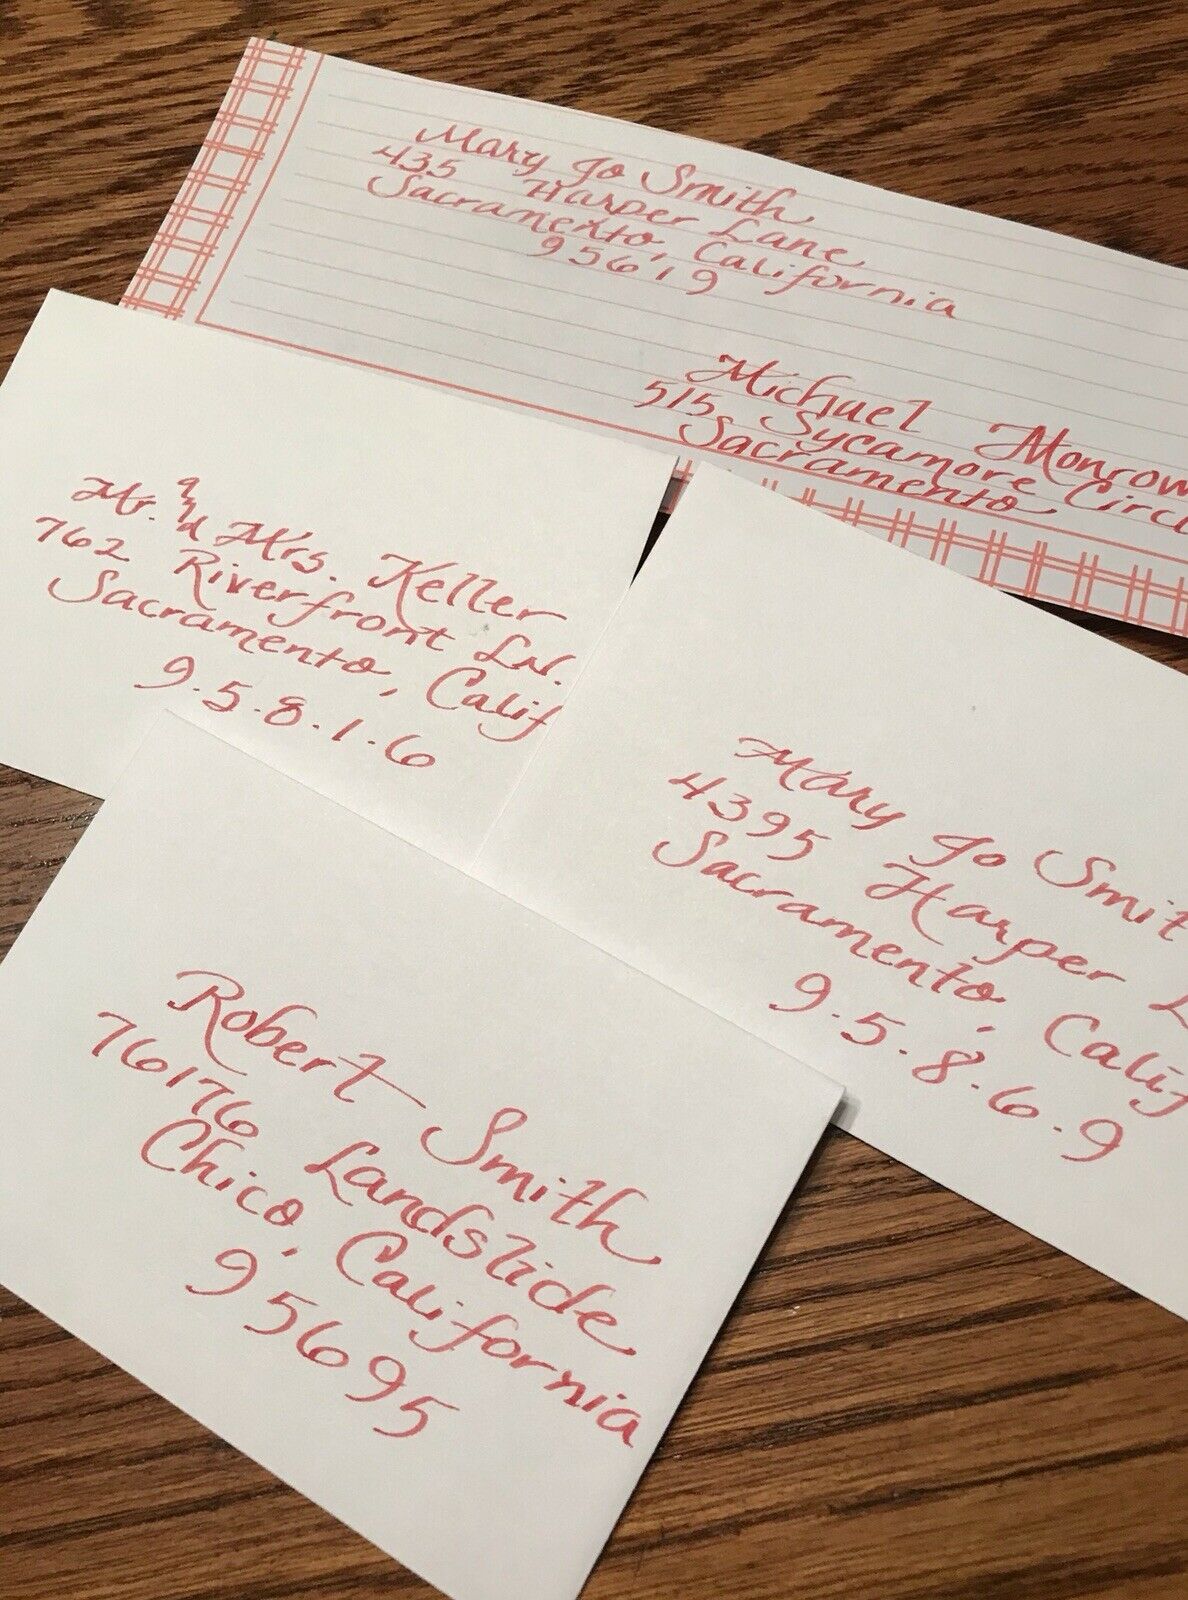 Mary Jo Smith
435 Harper Lane
Sacramento, California
95619
Michael Monrow
515 Sycamore Circl
Sacramento
Mr. and Mrs. Keller
762 Riverfront Ln.
Sacramento, Calif
9.5.8.1.6
Mary Jo Smit
4395 Harper L
Sacramento, Calif
9.5.8.6.9
Robert Smith
76176 Landslide
Chico, California
95695